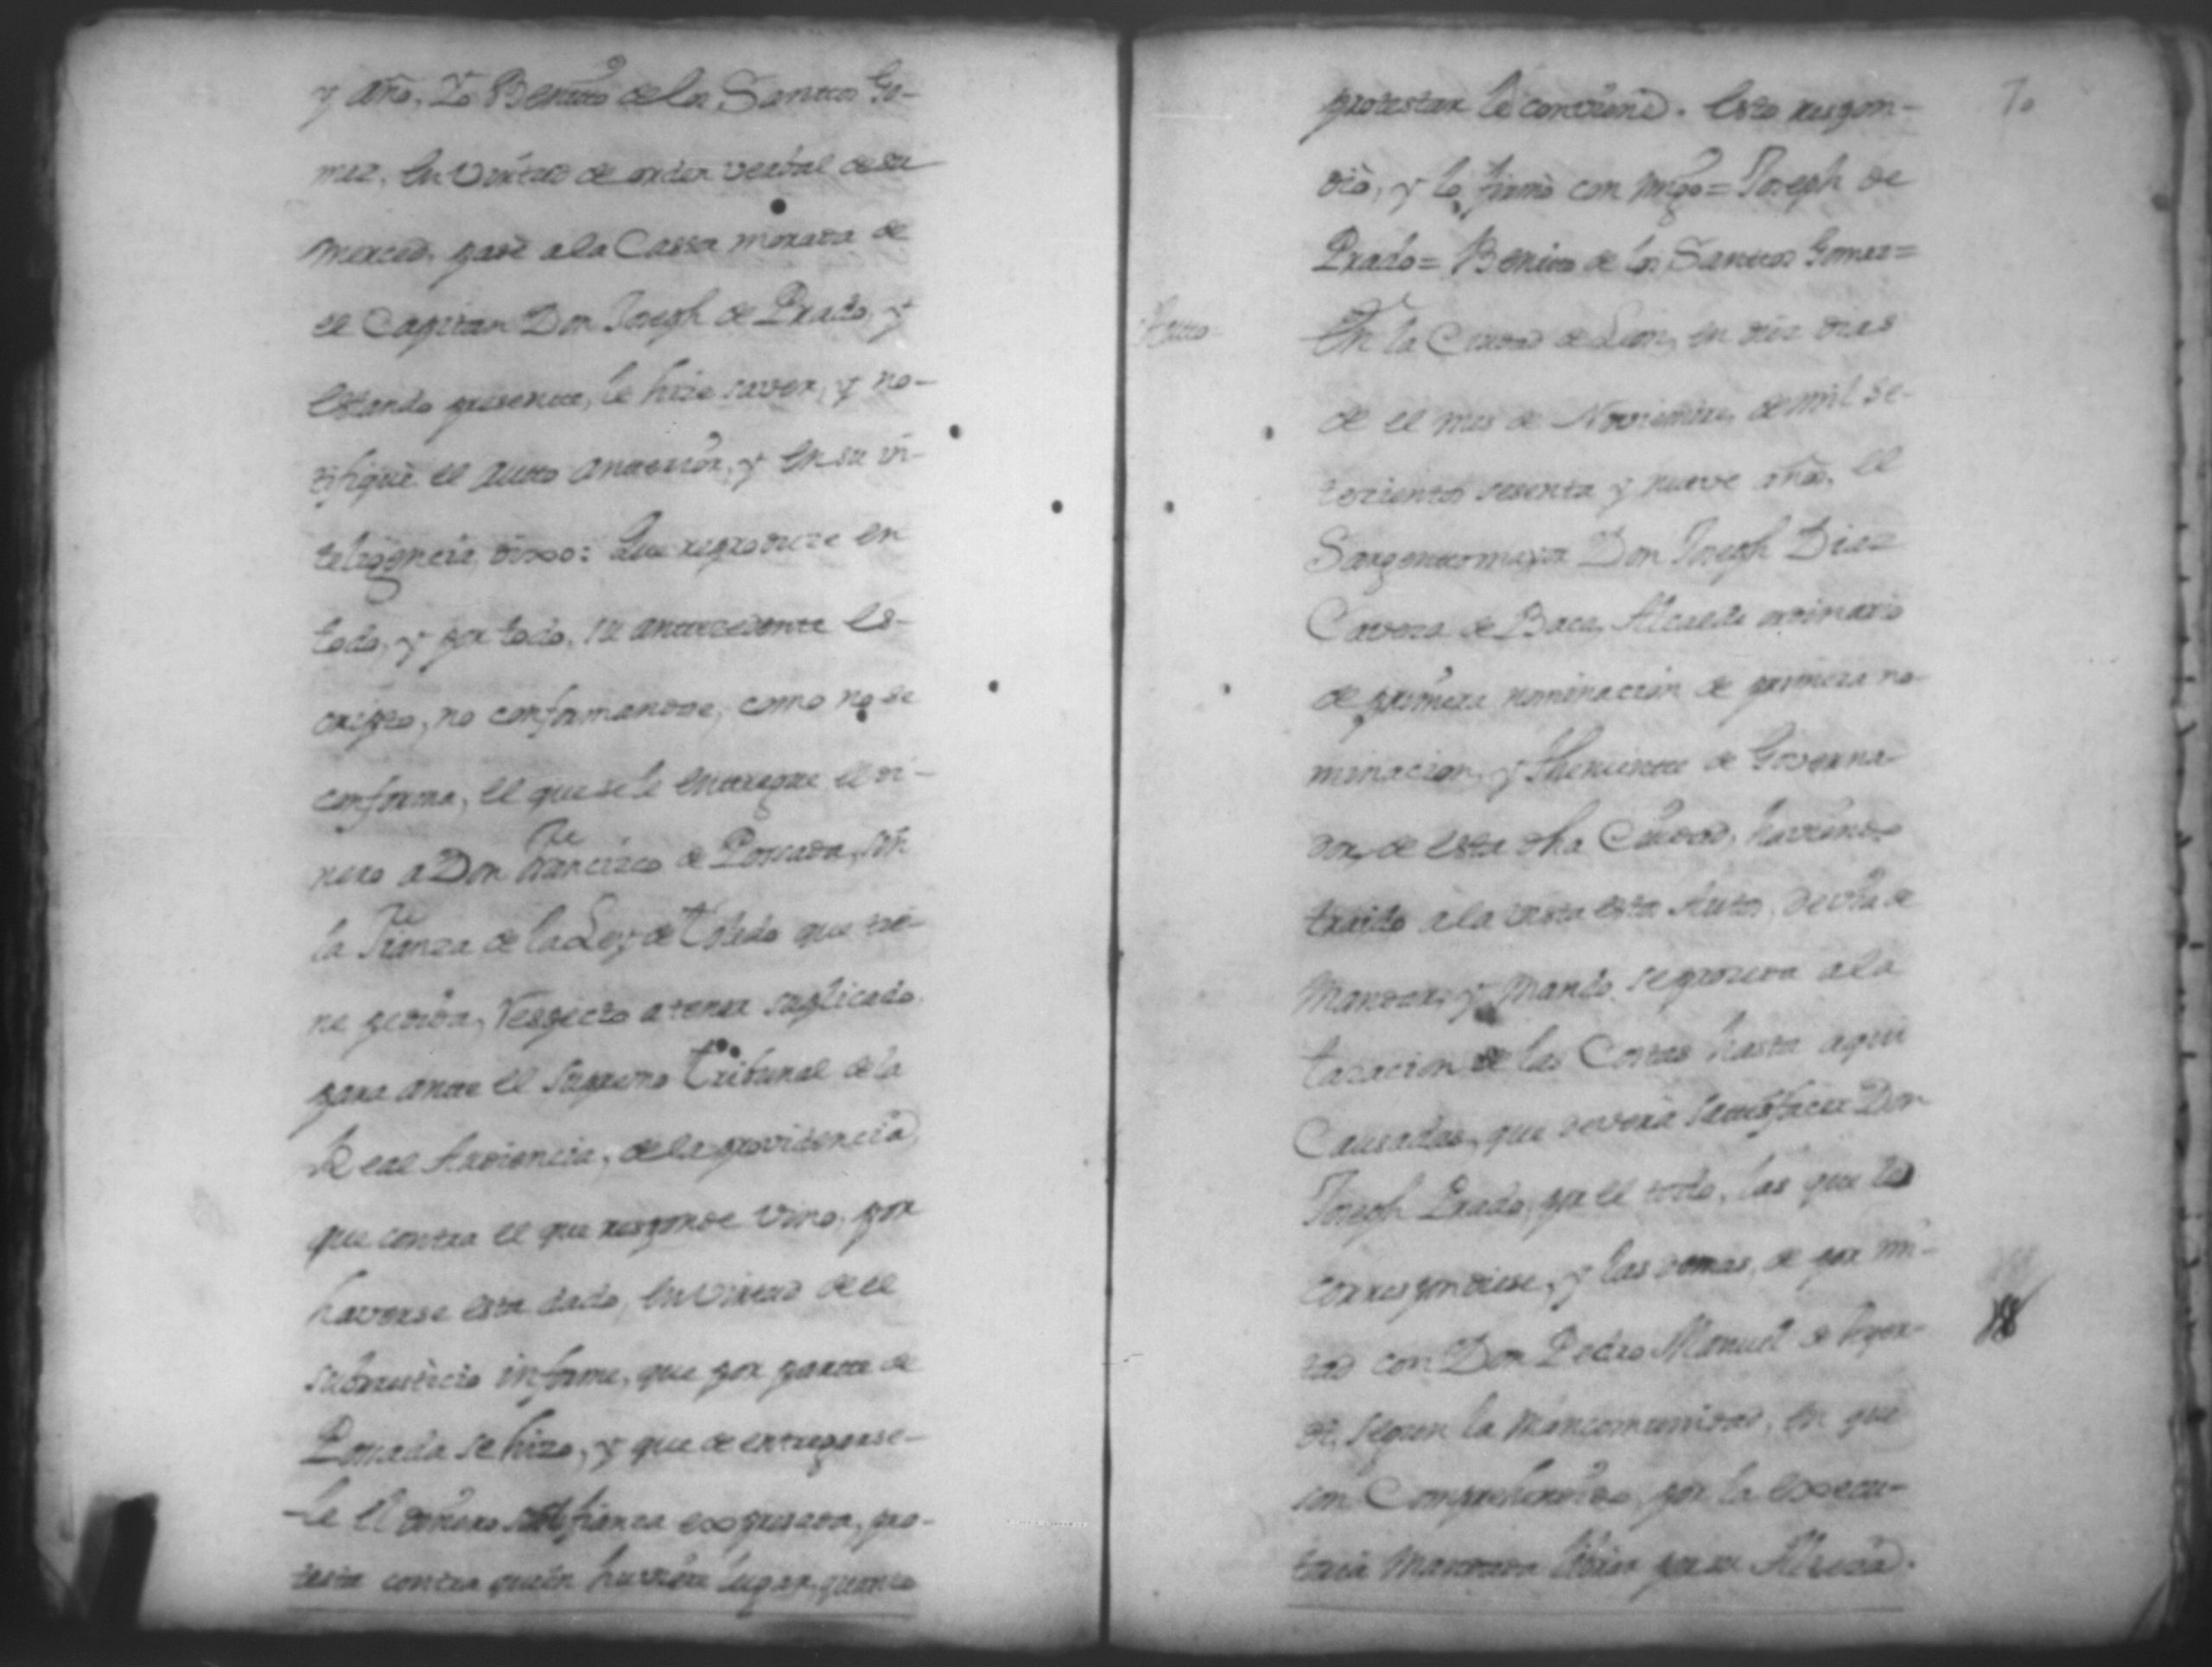 y año, Yo Benito de los Santtos Go-
mez, en virtud de orden verbal de su
Merced, pasé a la Cassa morada de
el Capitan Don Joseph de Prado, y
estando presentte, le hize saver, y no-
tifiqué el autto antterior, y en su in-
teligencia, dixo: Que reproduze en
todo, y por todo, su anttecedentte es-
cripto, no conformandose, como no se
conforma, el que se le enttregue el di-
nero a Don Francisco de Posada, sin
la Fianza de la Ley de Toledo que tie-
ne pedida, respecto a tener suplicado
para antte el Supremo Tribunal de la
Real Audiencia, de la providencia,
que contra el que responde vino, por
haverse esta dado, en virtud de el
subrecticio informe, que por partte de
Posada se hizo, y que de entregarse-
le el dinero sin fianza expresada, pro-
testa contra quien huviere lugar, quanto
protestar le conviene. Esto respon-
dió, y lo firmó con migo = Joseph de
Prado = Benito de los Santtos Gomez =
Autto
En la Ciudad de Leon, en diez dias
de el mes de Noviembre, de mil se-
tecientos sesenta y nueve años, el
Sargenttomayor Don Joseph Diaz
Caveza de Baca, Alcalde ordinario
de primera nominacion de primera no-
minacion, y Thenientte de Governa-
dor, de esta dha Ciudad, haviendo
traido a la vista estos Autos, devia de
Mandar, y Mandó, se proceda a la
tazacion de las Costas hasta aqui
Causadas, que deverá sattisfacer Don
Joseph Prado, por el todo, las que le
correspondiese, y las demas, de por mi-
tad con Don Pedro Manuel de
segun la Mancomunidad, en que
son Comprehendidos, por la execu-
toria Mandada librar por su Alteza.
70